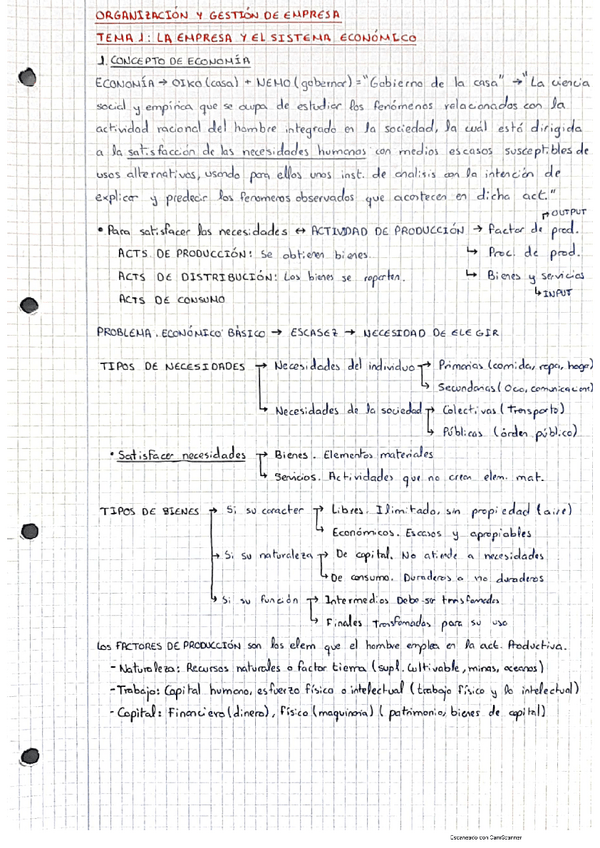 ORGANIZACIÓN Y GESTIÓN DE EMPRESA
TEMA 1: LA EMPRESA Y EL SISTEMA ECONÓMICO
1. CONCEPTO DE ECONOMÍA
ECONOMÍA → OIKO (casa) + NEMO (gobernar) = "Gobierno de la casa" → "La ciencia
social y empírica que se ocupa de estudiar los fenómenos relacionados con la
actividad racional del hombre integrado en la sociedad, la cuál está dirigida
a la satisfacción de las necesidades humanas con medios escasos susceptibles de
usos alternativos, usando para ellos unos inst. de analisis con la intención de
explicar y predecir los fenomenos observados que acontecen en dicha act."
• Para satisfacer las necesidades ↔ ACTIVIDAD DE PRODUCCIÓN → Factor de prod. → OUTPUT
ACTS DE PRODUCCIÓN: Se obtienen bienes ↳ Proc. de prod.
ACTS DE DISTRIBUCIÓN: Los bienes se reparten. ↳ Bienes y servicios
↳ INPUT
ACTS DE CONSUMO
PROBLEMA ECONÓMICO BÁSICO → ESCASEZ → NECESIDAD DE ELEGIR
TIPOS DE NECESIDADES → Necesidades del individuo → Primarias (comida, ropa, hogar)
↳ Secundarias (Ocio, comunicacion)
↳ Necesidades de la sociedad → Colectivas (Transporte)
↳ Públicas (órden público)
• Satisfacer necesidades → Bienes. Elementos materiales
↳ Servicios. Actividades que no crean elem. mat.
TIPOS DE BIENES → Si su caracter → Libres. Ilimitado, sin propiedad (aire)
↳ Económicos. Escasos y apropiables
→ Si su naturaleza → De capital. No atiende a necesidades
↳ De consumo. Duraderos o no duraderos
↳ Si su función → Intermedios Debe ser transformados
↳ Finales Transformados para su uso
Los FACTORES DE PRODUCCIÓN son los elem que el hombre emplea en la act. Productiva.
- Naturaleza: Recursos naturales o factor tierra (supf. cultivable, minas, oceanos)
- Trabajo: Capital humano, esfuerzo físico o intelectual (trabajo físico y lo intelectual)
- Capital: Financiero (dinero), físico (maquinaria) (patrimonio, bienes de capital)
Escaneado con CamScanner